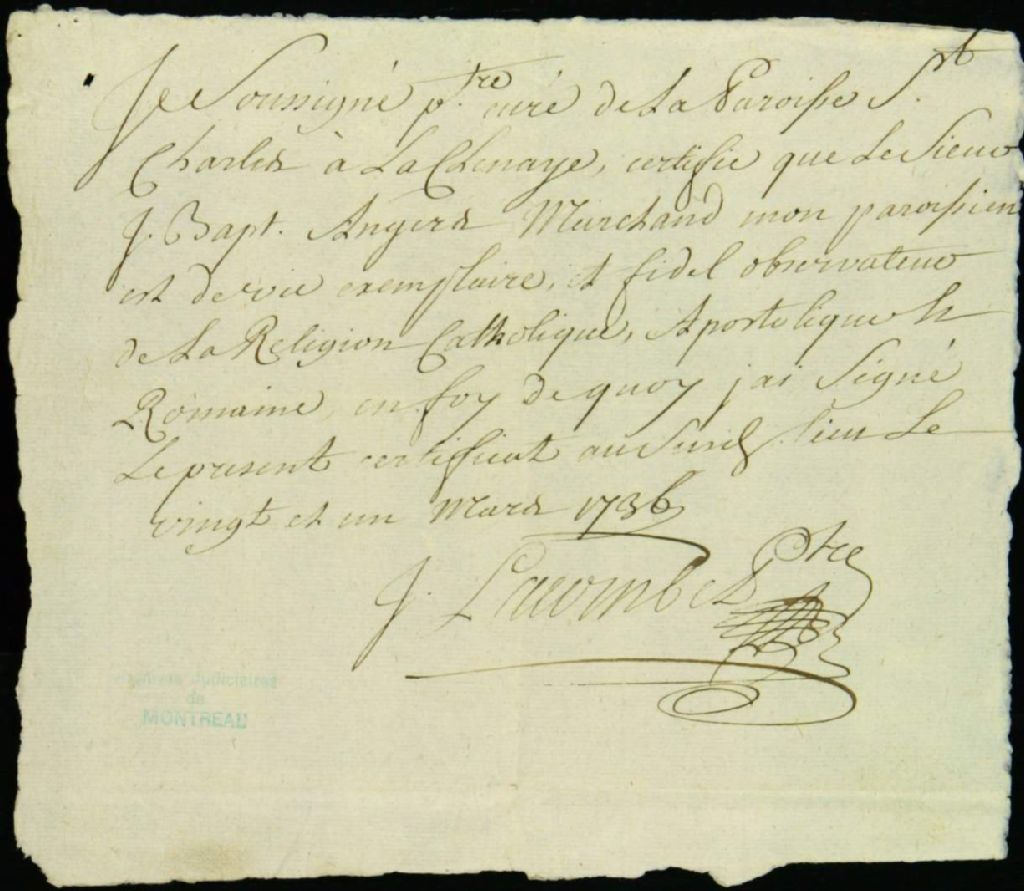 Je Soussigné p.tre curé de La Paroisse S.t
Charles à LaChenaye, certifie que Le Sieur
J. Bapt. Angers Marchand mon paroissien
est de vie exemplaire, et fidel observateur
de La Religion Catholique, Apostolique &
Romaine, en foy de quoy jai Signé
Le present certificat au Susd. lieu Le
vingt et un Mars 1736
J. Lacombe Ptre
Archives Judiciaires
de
MONTREAL